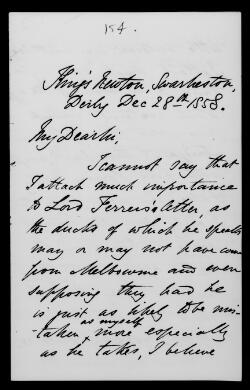 154.
King's Newton, Swarkeston,
Derby Dec 28th 1858.
My Dear Sir,
I cannot say that
I attach much importance
to Lord Ferrers's letter, as
the ducks of which he speaks
may or may not have come
from Melbourne and even
supposing they had he
is just as likely to be mis-
-taken as myself more especially
as he takes, I believe